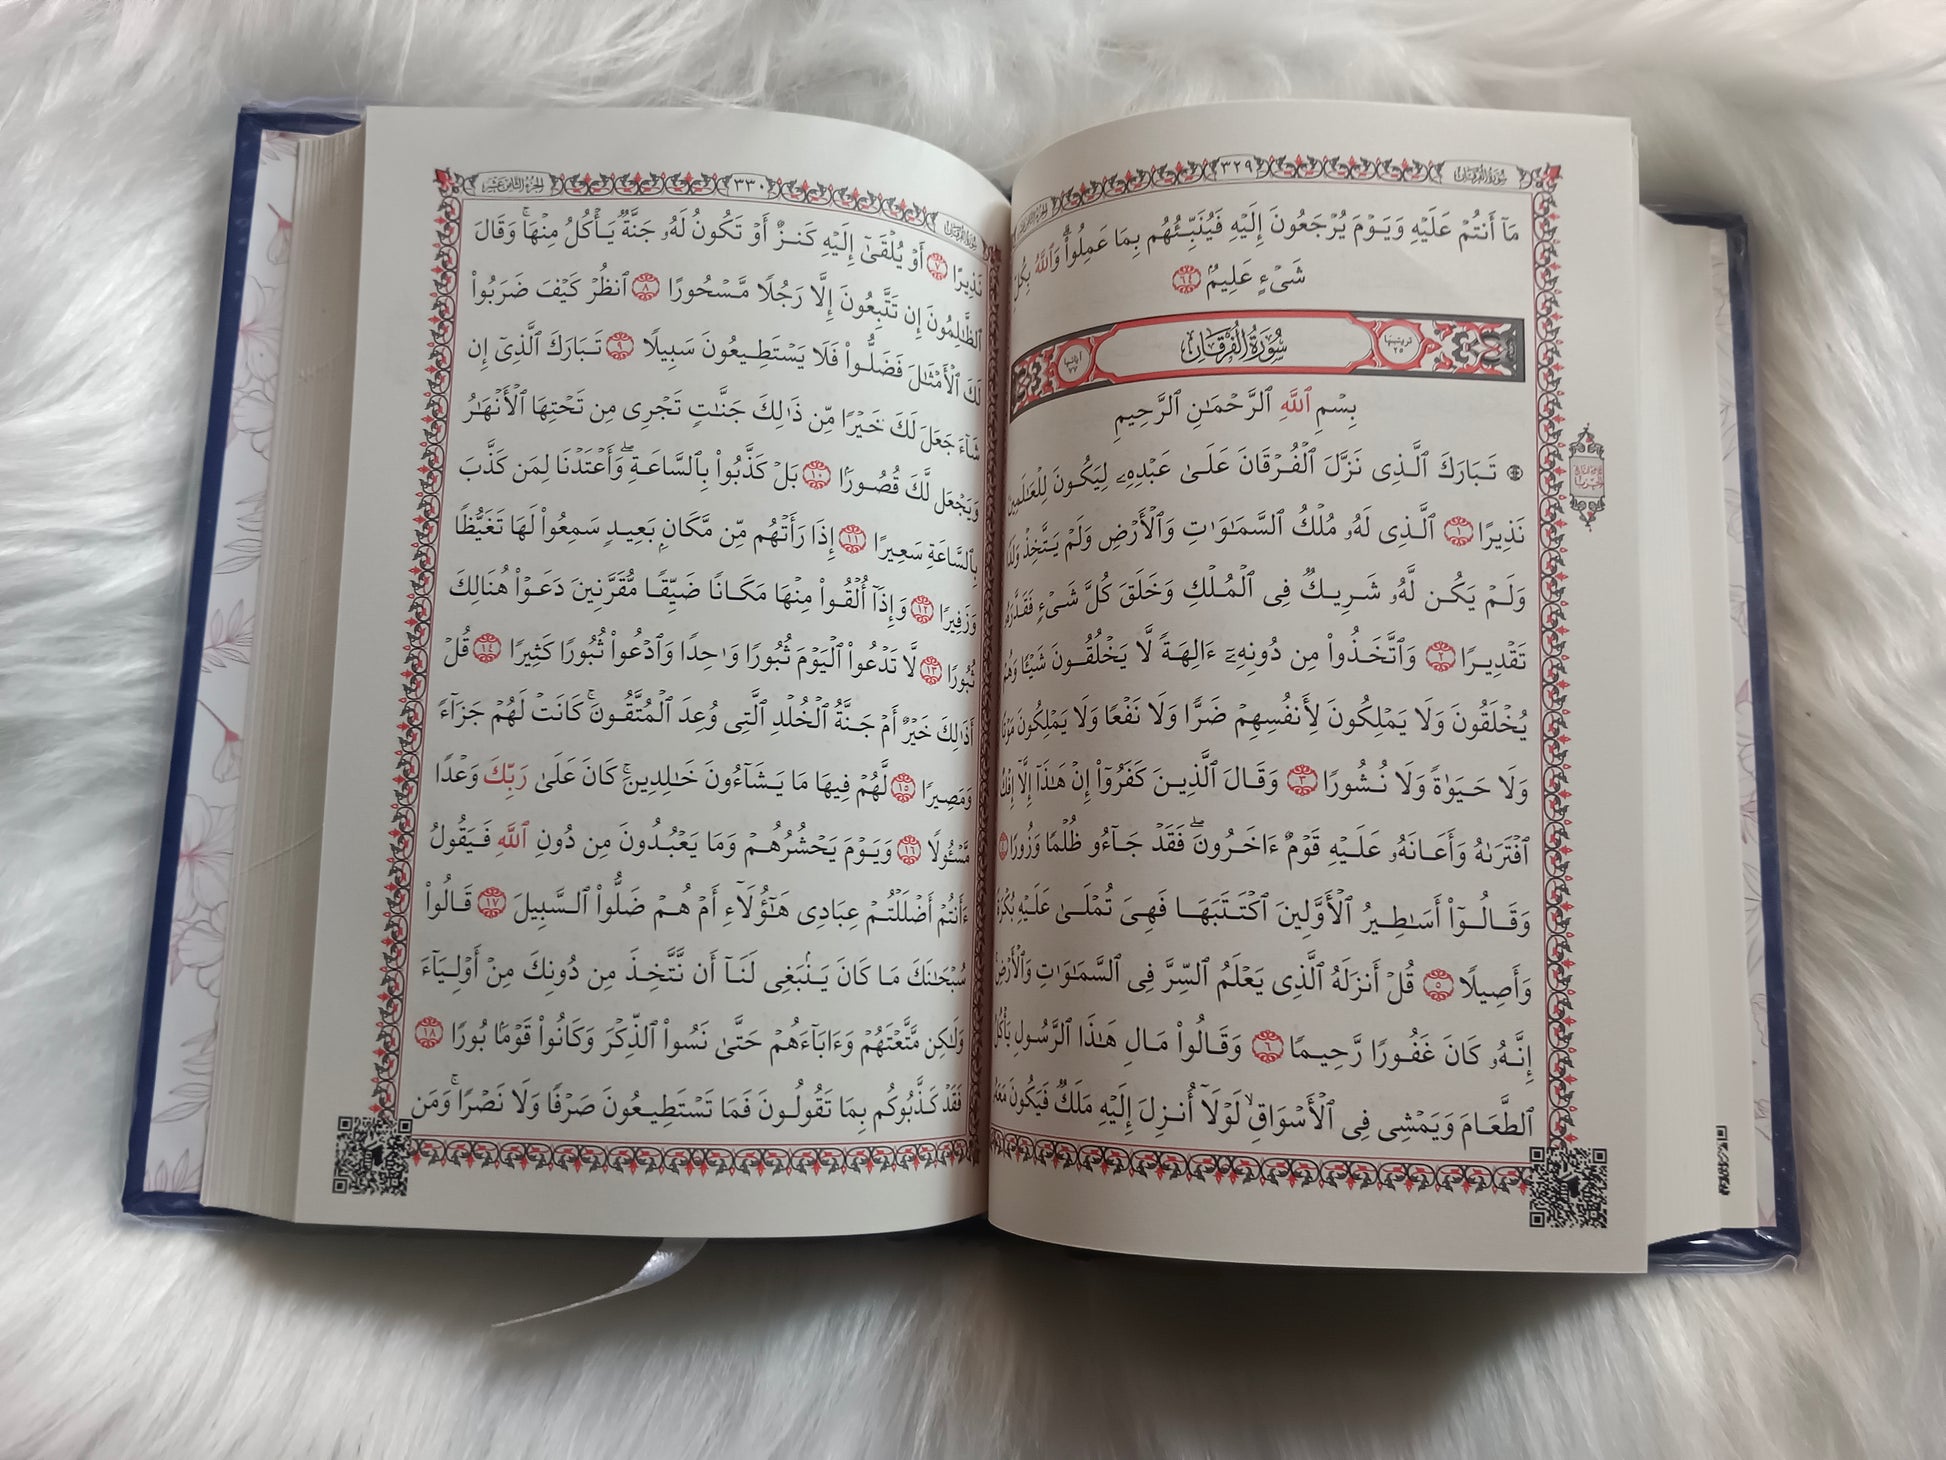 سُورَةُ الفُرْقَانِ
٣٢٩
مَآ أَنتُمْ عَلَيْهِ وَيَوْمَ يُرْجَعُونَ إِلَيْهِ فَيُنَبِّئُهُم بِمَا عَمِلُوا۟ ۗ وَٱللَّهُ بِكُلِّ
شَىْءٍ عَلِيمٌۢ ٦٤
ترتيبها ٢٥ سُورَةُ الفُرْقَانِ آياتها ٧٧
بِسْمِ ٱللَّهِ ٱلرَّحْمَـٰنِ ٱلرَّحِيمِ
۞ تَبَارَكَ ٱلَّذِى نَزَّلَ ٱلْفُرْقَانَ عَلَىٰ عَبْدِهِۦ لِيَكُونَ لِلْعَـٰلَمِينَ
نَذِيرًا ١ ٱلَّذِى لَهُۥ مُلْكُ ٱلسَّمَـٰوَٰتِ وَٱلْأَرْضِ وَلَمْ يَتَّخِذْ وَلَدًا
وَلَمْ يَكُن لَّهُۥ شَرِيكٌ فِى ٱلْمُلْكِ وَخَلَقَ كُلَّ شَىْءٍ فَقَدَّرَهُۥ
تَقْدِيرًا ٢ وَٱتَّخَذُوا۟ مِن دُونِهِۦٓ ءَالِهَةً لَّا يَخْلُقُونَ شَيْـًٔا وَهُمْ
يُخْلَقُونَ وَلَا يَمْلِكُونَ لِأَنفُسِهِمْ ضَرًّا وَلَا نَفْعًا وَلَا يَمْلِكُونَ مَوْتًا
وَلَا حَيَوٰةً وَلَا نُشُورًا ٣ وَقَالَ ٱلَّذِينَ كَفَرُوٓا۟ إِنْ هَـٰذَآ إِلَّآ إِفْكٌ
ٱفْتَرَىٰهُ وَأَعَانَهُۥ عَلَيْهِ قَوْمٌ ءَاخَرُونَ ۖ فَقَدْ جَآءُو ظُلْمًا وَزُورًا ٤
وَقَالُوٓا۟ أَسَـٰطِيرُ ٱلْأَوَّلِينَ ٱكْتَتَبَهَا فَهِىَ تُمْلَىٰ عَلَيْهِ بُكْرَةً
وَأَصِيلًا ٥ قُلْ أَنزَلَهُ ٱلَّذِى يَعْلَمُ ٱلسِّرَّ فِى ٱلسَّمَـٰوَٰتِ وَٱلْأَرْضِ ۚ
إِنَّهُۥ كَانَ غَفُورًا رَّحِيمًا ٦ وَقَالُوا۟ مَالِ هَـٰذَا ٱلرَّسُولِ يَأْكُلُ
ٱلطَّعَامَ وَيَمْشِى فِى ٱلْأَسْوَاقِ ۙ لَوْلَآ أُنزِلَ إِلَيْهِ مَلَكٌ فَيَكُونَ مَعَهُۥ
سُورَةُ الفُرْقَانِ
٣٣٠
الجُزْءُ الثَّامِنَ عَشَرَ
نَذِيرًا ٧ أَوْ يُلْقَىٰٓ إِلَيْهِ كَنزٌ أَوْ تَكُونُ لَهُۥ جَنَّةٌ يَأْكُلُ مِنْهَا ۚ وَقَالَ
ٱلظَّـٰلِمُونَ إِن تَتَّبِعُونَ إِلَّا رَجُلًا مَّسْحُورًا ٨ ٱنظُرْ كَيْفَ ضَرَبُوا۟
لَكَ ٱلْأَمْثَـٰلَ فَضَلُّوا۟ فَلَا يَسْتَطِيعُونَ سَبِيلًا ٩ تَبَارَكَ ٱلَّذِىٓ إِن
شَآءَ جَعَلَ لَكَ خَيْرًا مِّن ذَٰلِكَ جَنَّـٰتٍ تَجْرِى مِن تَحْتِهَا ٱلْأَنْهَـٰرُ
وَيَجْعَل لَّكَ قُصُورًۢا ١٠ بَلْ كَذَّبُوا۟ بِٱلسَّاعَةِ ۖ وَأَعْتَدْنَا لِمَن كَذَّبَ
بِٱلسَّاعَةِ سَعِيرًا ١١ إِذَا رَأَتْهُم مِّن مَّكَانٍۭ بَعِيدٍ سَمِعُوا۟ لَهَا تَغَيُّظًا
وَزَفِيرًا ١٢ وَإِذَآ أُلْقُوا۟ مِنْهَا مَكَانًا ضَيِّقًا مُّقَرَّنِينَ دَعَوْا۟ هُنَالِكَ
ثُبُورًا ١٣ لَّا تَدْعُوا۟ ٱلْيَوْمَ ثُبُورًا وَٰحِدًا وَٱدْعُوا۟ ثُبُورًا كَثِيرًا ١٤ قُلْ
أَذَٰلِكَ خَيْرٌ أَمْ جَنَّةُ ٱلْخُلْدِ ٱلَّتِى وُعِدَ ٱلْمُتَّقُونَ ۚ كَانَتْ لَهُمْ جَزَآءً
وَمَصِيرًا ١٥ لَّهُمْ فِيهَا مَا يَشَآءُونَ خَـٰلِدِينَ ۚ كَانَ عَلَىٰ رَبِّكَ وَعْدًا
مَّسْـُٔولًا ١٦ وَيَوْمَ يَحْشُرُهُمْ وَمَا يَعْبُدُونَ مِن دُونِ ٱللَّهِ فَيَقُولُ
ءَأَنتُمْ أَضْلَلْتُمْ عِبَادِى هَـٰٓؤُلَآءِ أَمْ هُمْ ضَلُّوا۟ ٱلسَّبِيلَ ١٧ قَالُوا۟
سُبْحَـٰنَكَ مَا كَانَ يَنۢبَغِى لَنَآ أَن نَّتَّخِذَ مِن دُونِكَ مِنْ أَوْلِيَآءَ
وَلَـٰكِن مَّتَّعْتَهُمْ وَءَابَآءَهُمْ حَتَّىٰ نَسُوا۟ ٱلذِّكْرَ وَكَانُوا۟ قَوْمًۢا بُورًا ١٨
فَقَدْ كَذَّبُوكُم بِمَا تَقُولُونَ فَمَا تَسْتَطِيعُونَ صَرْفًا وَلَا نَصْرًا ۚ وَمَن